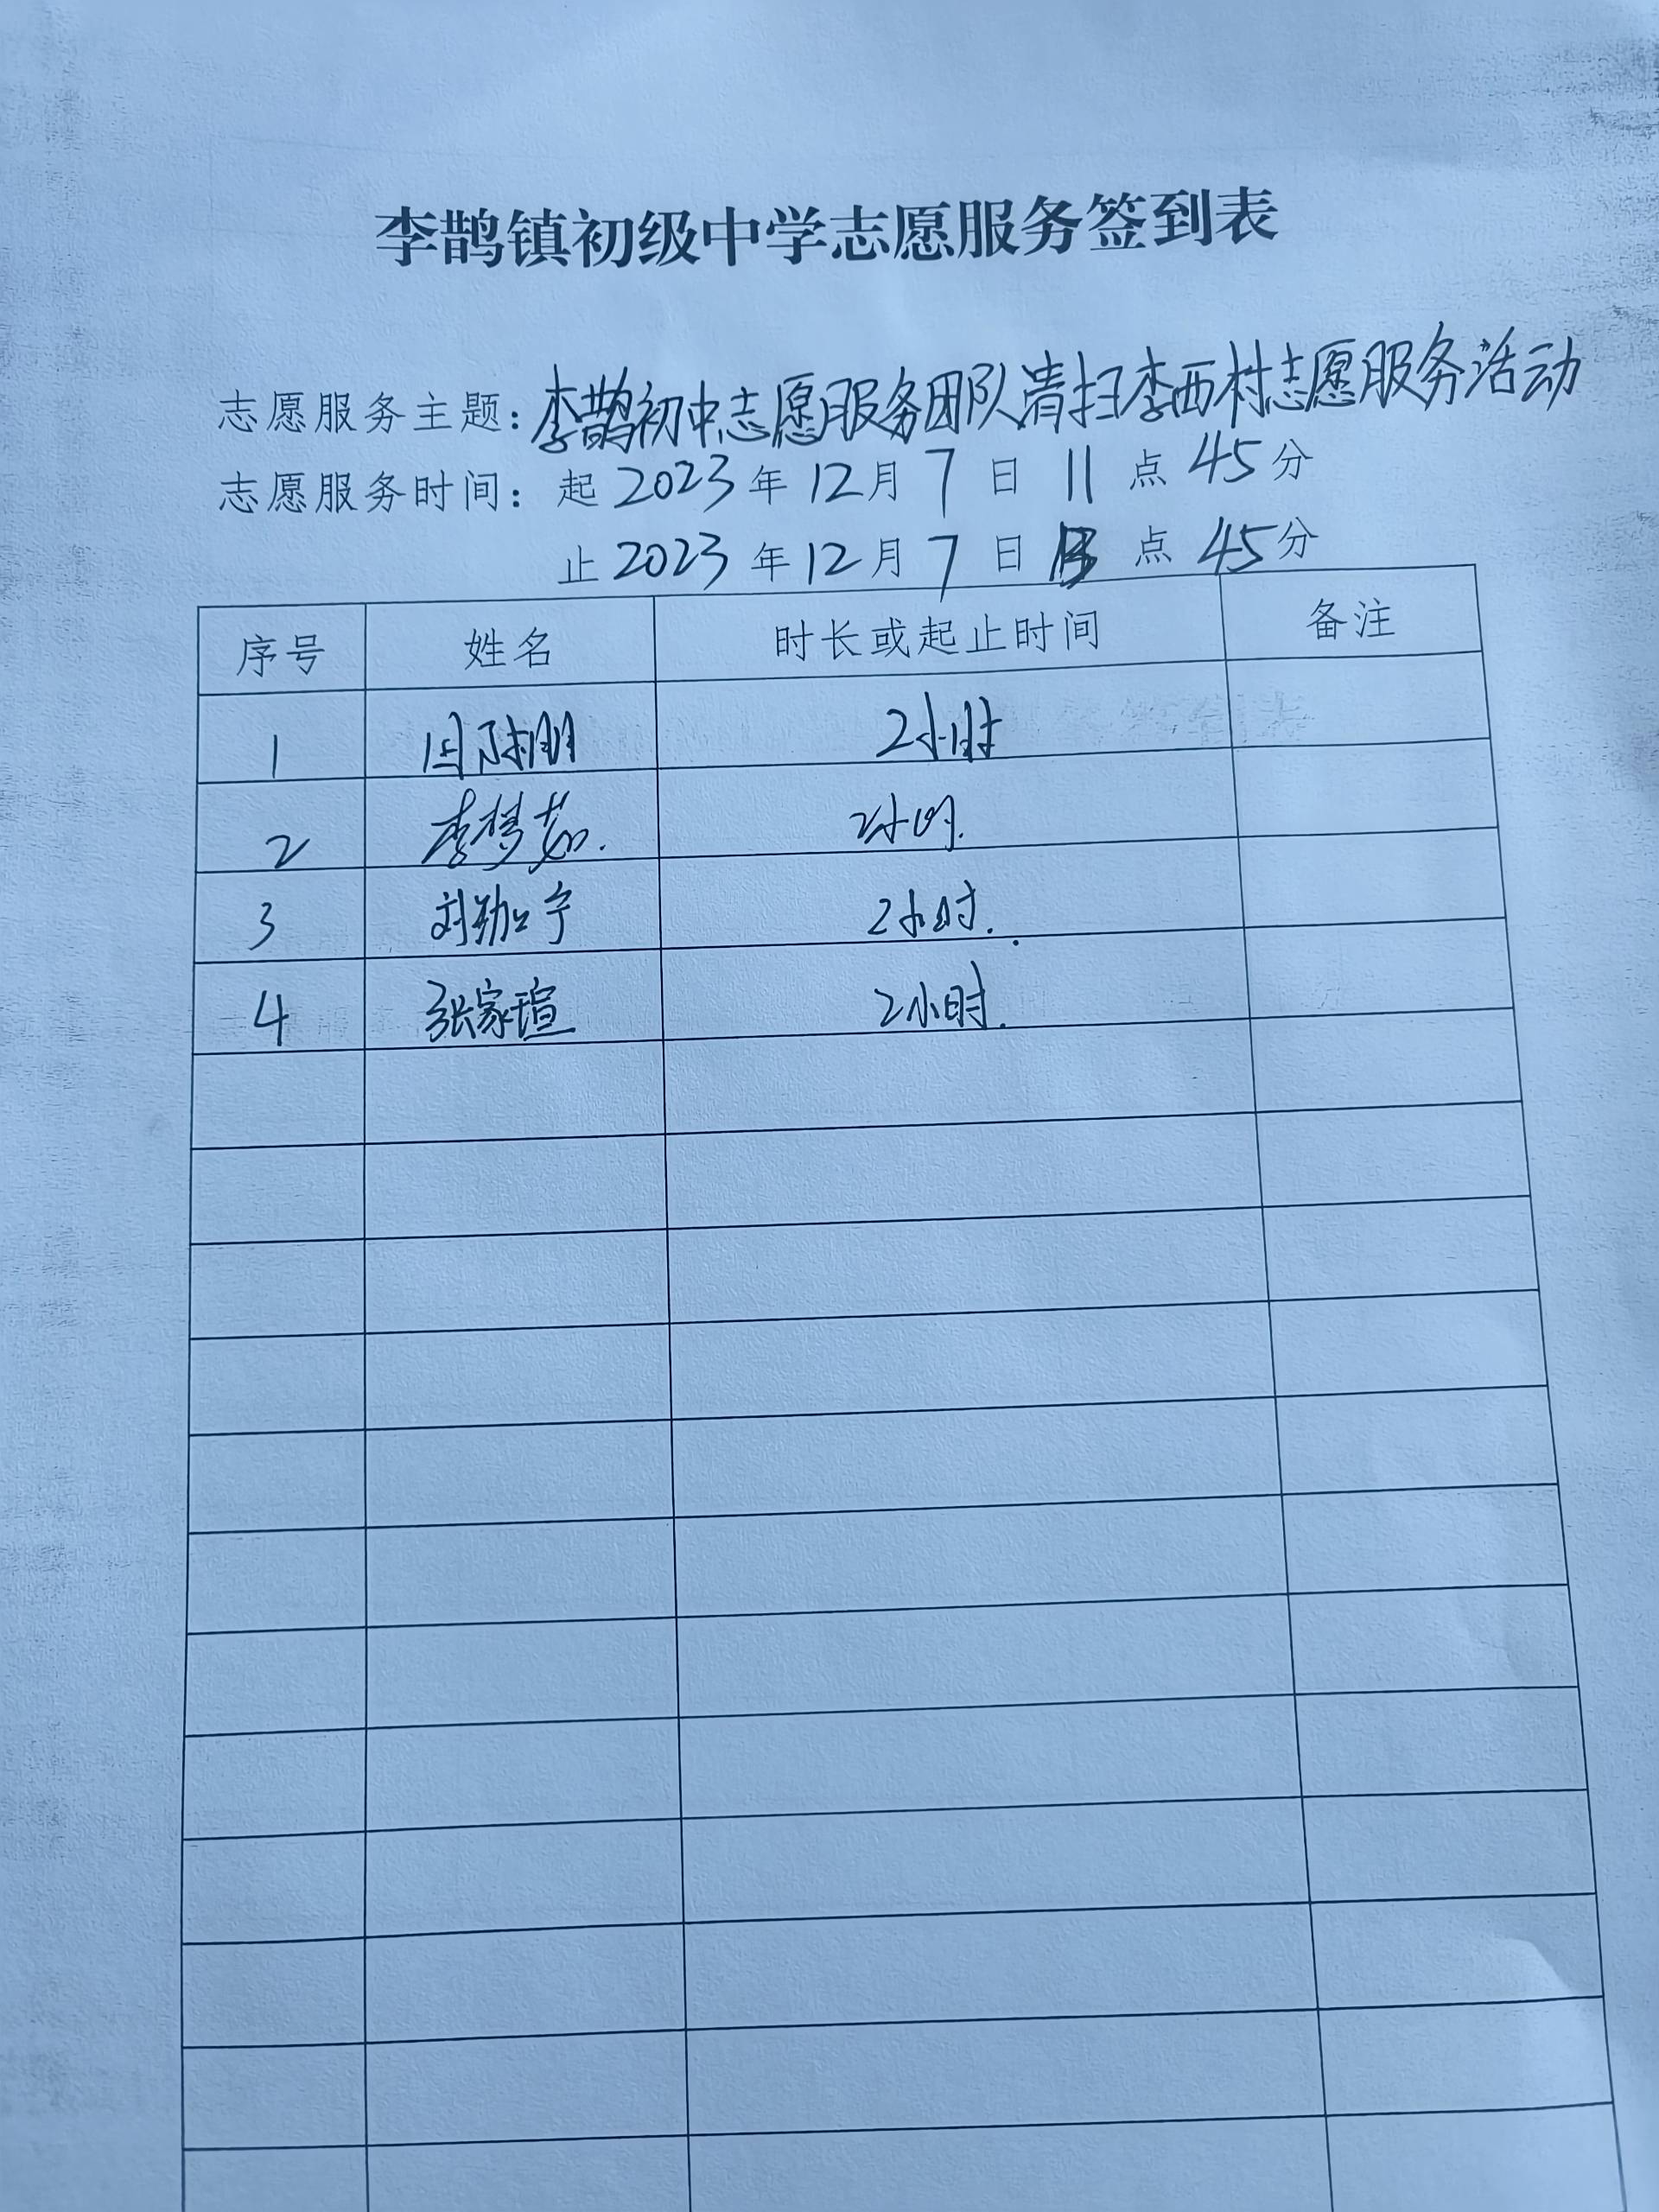 李鹊镇初级中学志愿服务签到表
志愿服务主题：李鹊初中志愿服务团队清扫李西村志愿服务活动
志愿服务时间：起 2023 年 12 月 7 日 11 点 45 分
止 2023 年 12 月 7 日 13 点 45 分
序号 姓名 时长或起止时间 备注
1 2小时
2 李梦茹. 2小时.
3 刘 宁 2小时.
4 张家瑄 2小时.